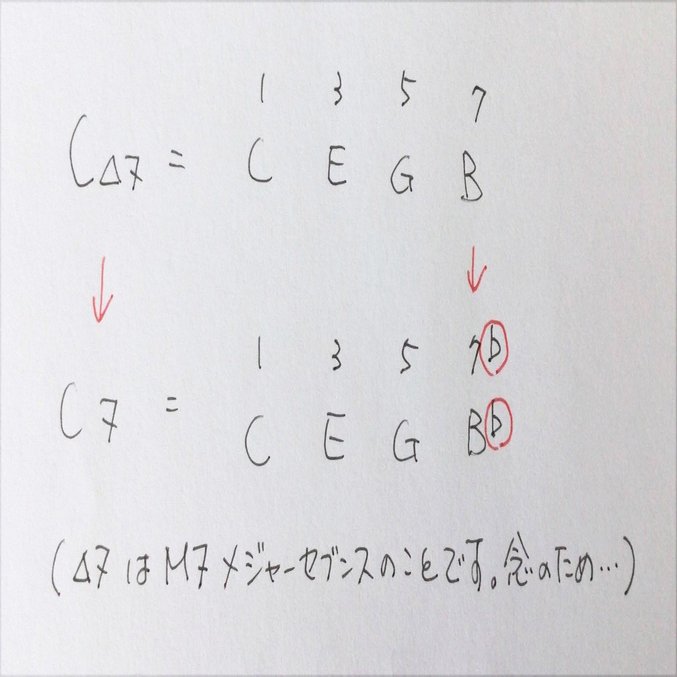 1 3 5 7
C△7 = C E G B
↓ ↓
1 3 5 7b
C7 = C E G Bb
(△7はM7メジャーセブンスのことです。念のため…)